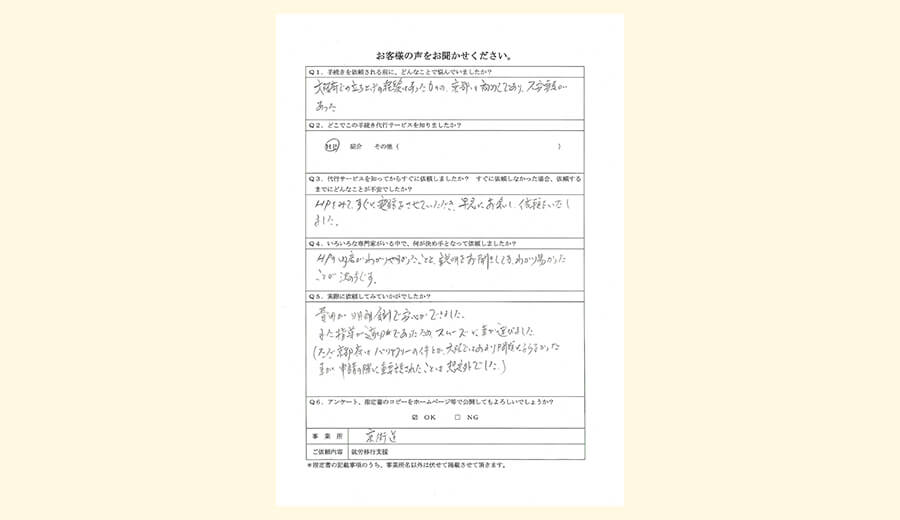 お客様の声をお聞かせください。
Q1．手続きを依頼される前に、どんなことで悩んでいましたか？
大阪府での立ち上げの経験はあったものの、京都は初めてであり、不安要素が
あった
Q2．どこでこの手続き代行サービスを知りましたか？
HP 紹介 その他（ ）
Q3．代行サービスを知ってからすぐに依頼しましたか？ すぐに依頼しなかった場合、依頼する
までにどんなことが不安でしたか？
HPをみて、すぐに連絡をさせていただき、早急にお会いし、依頼をいたし
ました。
Q4．いろいろな専門家がいる中で、何が決め手となって依頼しましたか？
HPの内容がわかりやすかったことと、説明をお聞きしてもわかり易かった
ことが決め手です。
Q5．実際に依頼してみていかがでしたか？
費用が明朗会計で安心ができました。
また指導が適切であったため、スムーズに事が運びました
（ただ京都府はバリアフリーの件とか、大阪ではあまり問題にならなかった
事が申請の際に重要視されたことは想定外でした。）
Q6．アンケート、指定書のコピーをホームページ等で公開してもよろしいでしょうか？
☑ OK □ NG
事業所 京街道
ご依頼内容 就労移行支援
＊指定書の記載事項のうち、事業所名以外は伏せて掲載させて頂きます。